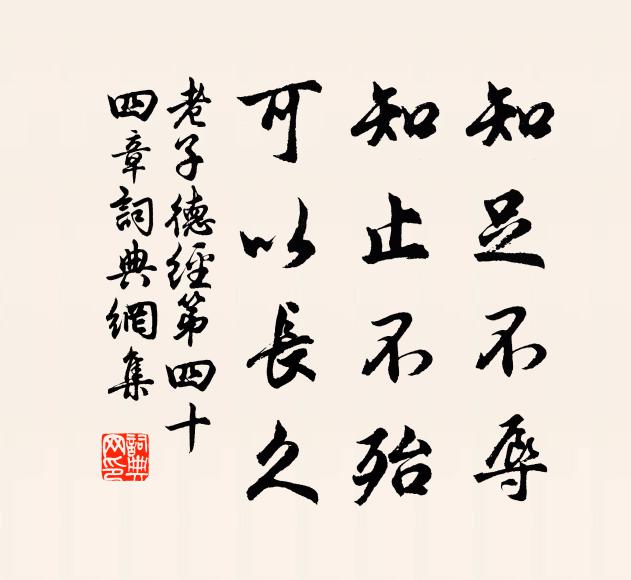 知足不辱
知止不殆
可以長久
老子德經第四十
四章詞典網集
詞典網印